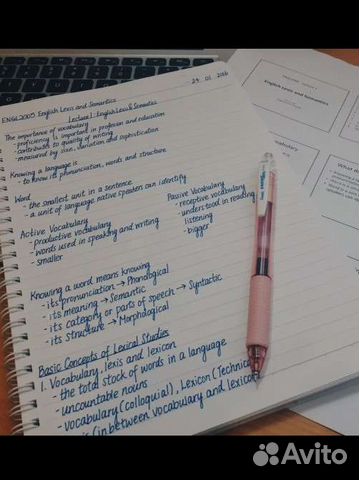 24 01 2016
ENGL2005 English Lexis and Semantics
Lecture 1: English Lexis & Semantics
The importance of vocabulary
- proficiency is important in profession and education
- contributes to quality of writing
- measured by size, variation and sophistication
Knowing a language is
- to know its pronunciation, words and structure
Word
- the smallest unit in a sentence
- a unit of language native speakers can identify
Active Vocabulary
- productive vocabulary
- words used in speaking and writing
- smaller
Passive Vocabulary
- receptive vocabulary
- understood in reading,
listening
- bigger
Knowing a word means knowing
- its pronunciation → Phonological
- its meaning → Semantic
- its category or parts of speech → Syntactic
- its structure → Morphological
Basic Concepts of Lexical Studies
1. Vocabulary, lexis and lexicon
- the total stock of words in a language
- uncountable nouns
- vocabulary (colloquial), Lexicon (Technical
(in between vocabulary and lexicon
English Lexis and Semantics
What
Avito